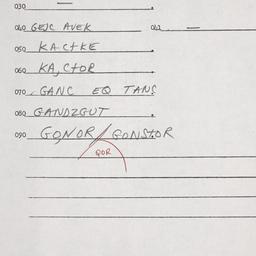 030
040 GEJC AVEK 042
050 KACTKE
060 KA,CTOR
070 GANC EQ TANS
080 GANDZGUT
090 GONOR/GONSTOR
QOR